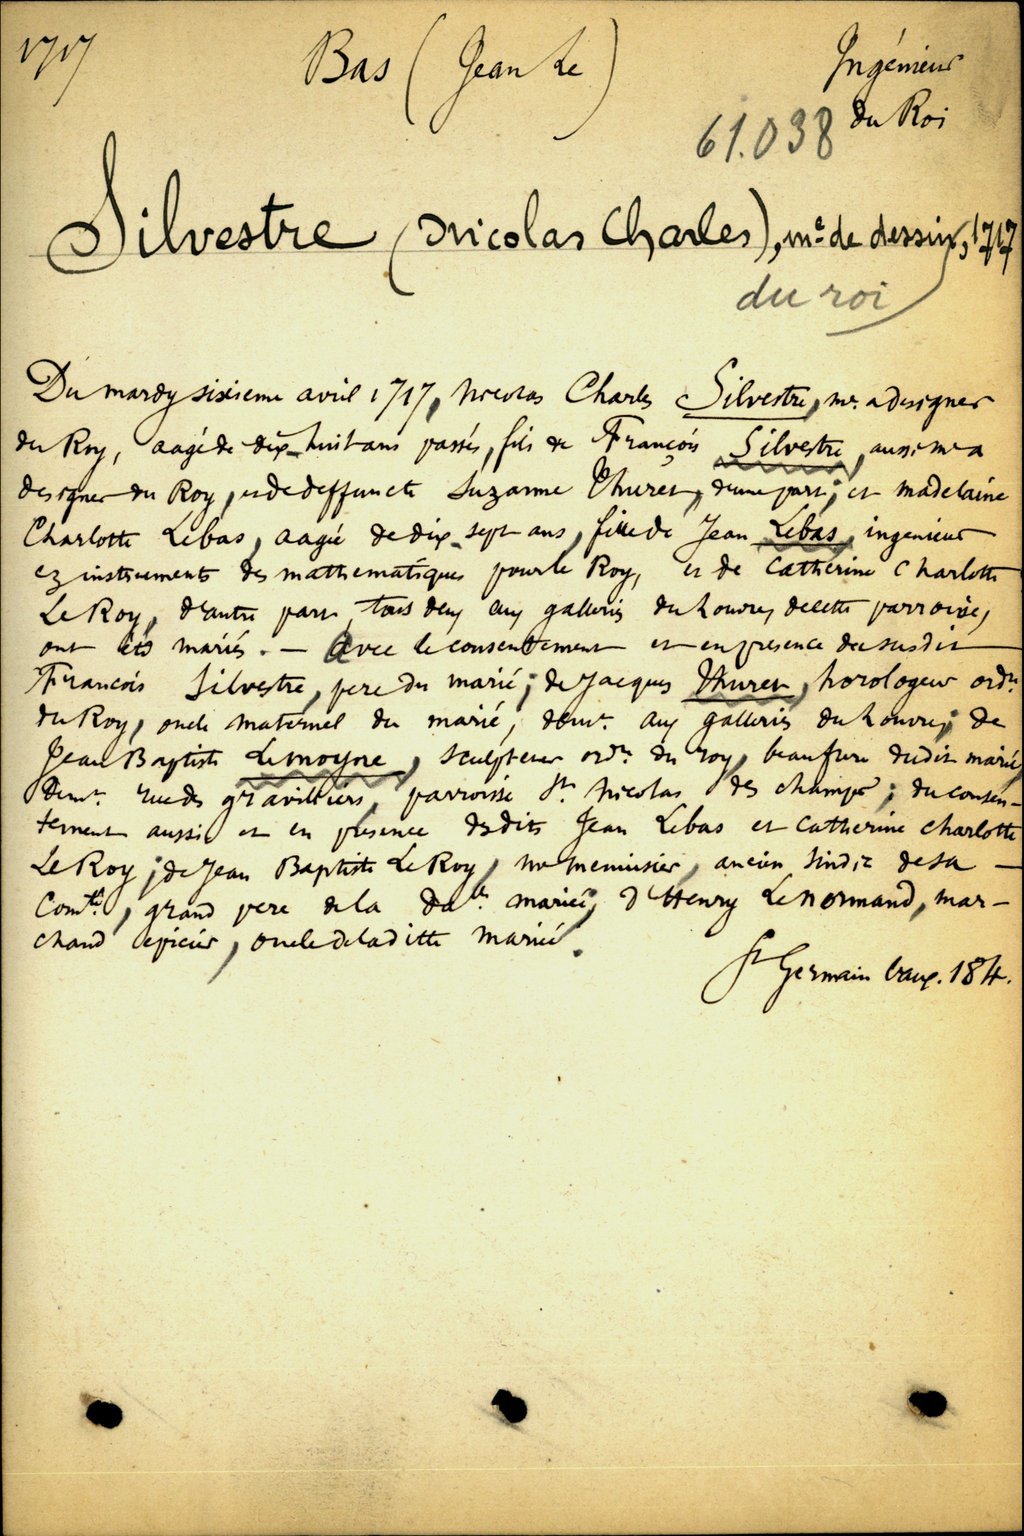 1717 Bas (Jean Le) Ingénieur
du Roi
61.038
Silvestre (Nicolas Charles), me de dessin, 1717
du roi
Du mardy sixieme avril 1717, Nicolas Charles Silvestre, me a designer
du Roy, aagé de dix-huit ans passés, fils de François Silvestre, aussi me a
designer du Roy, et de deffuncte Suzanne Thuret, d'une part; et Madelaine
Charlotte Lebas, aagée de dix-sept ans, fille de Jean Lebas, ingenieur
ez instruments des mathematiques pour le Roy, et de Catherine Charlotte
Le Roy, d'autre part, tous deux aux galleries du Louvre, de cette parroisse,
ont étés mariés. — Avec le consentement et en presence du susdit
François Silvestre, pere du marié; de Jacques Thuret, horologeur ordre
du Roy, oncle maternel du marié, demt aux galleries du Louvre; de
Jean Baptiste Lemoyne, sculpteur ordre du roy, beau frere dudit marié,
demt rue des gravilliers, parroisse St Nicolas des champs; du consen-
tement aussi et en presence desdits Jean Lebas et Catherine Charlotte
Le Roy; de Jean Baptiste Le Roy, me menuisier, ancien sindic de sa —
Comté, grand pere de la dte mariée; d'Henry Lenormand, mar-
chand epicier, oncle de la ditte mariée.
St Germain l'aux. 184.